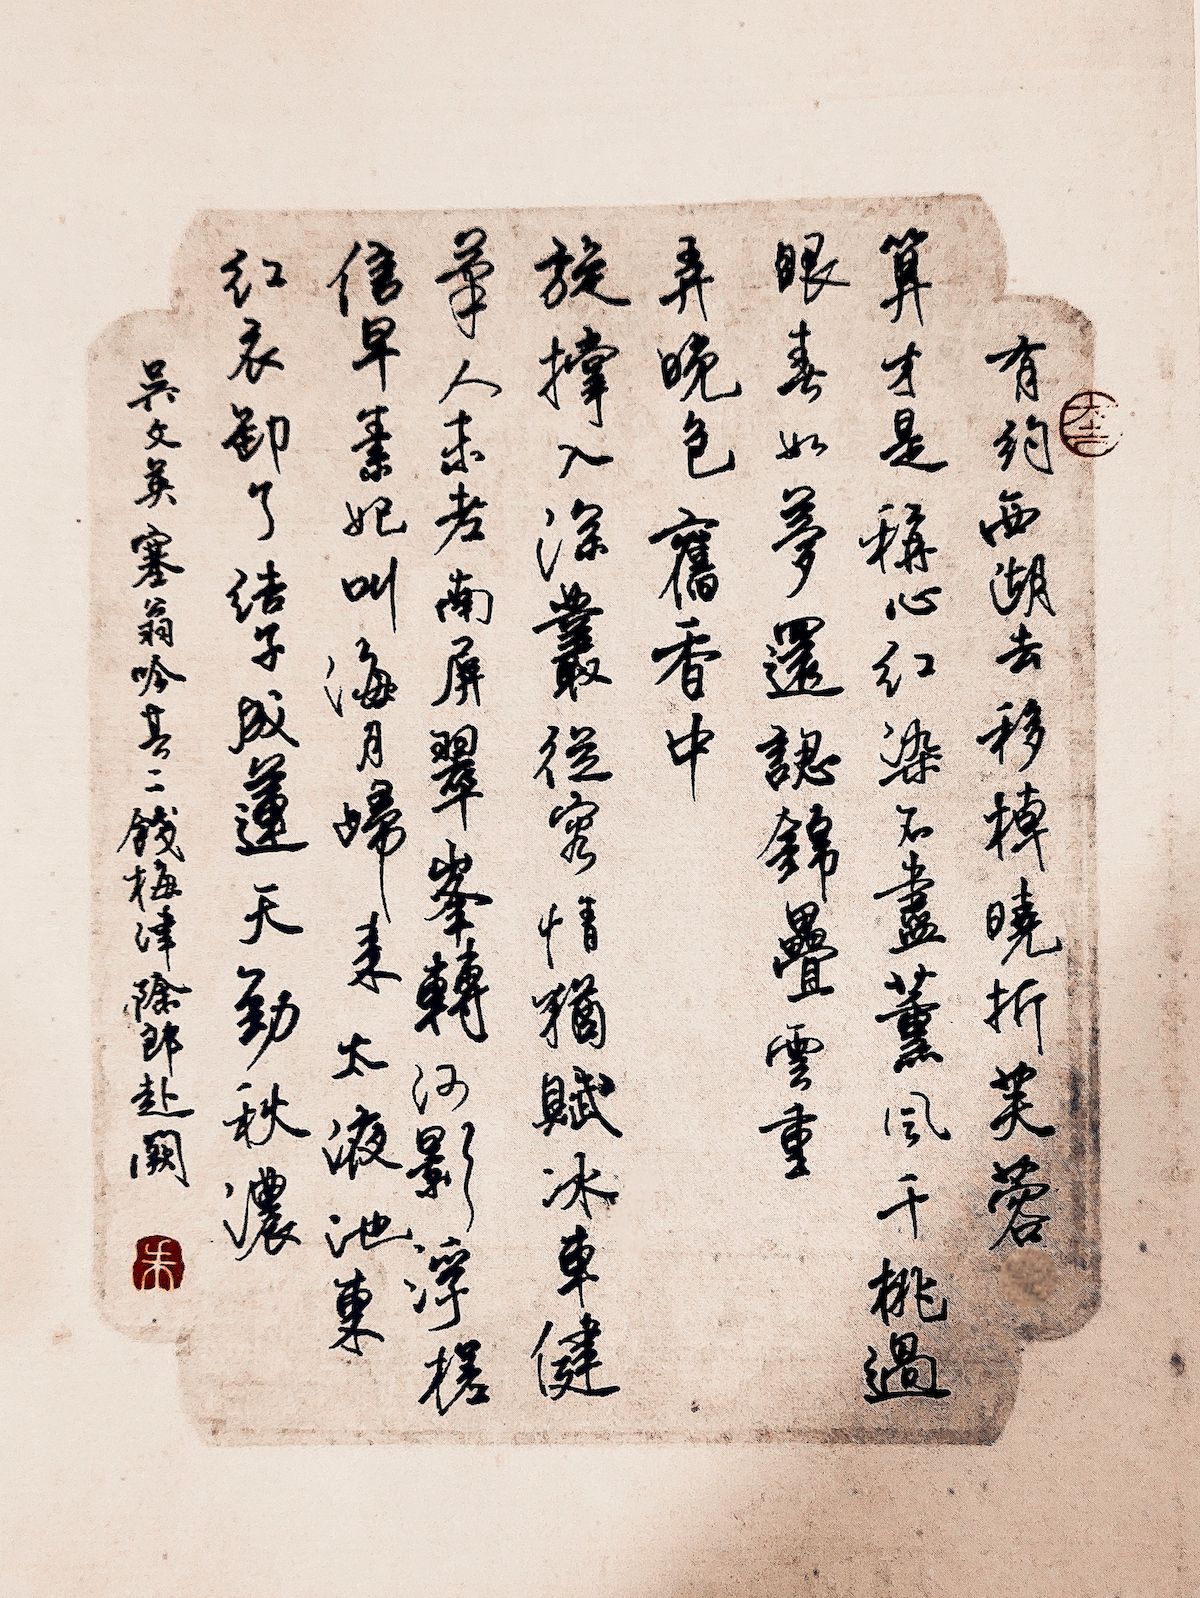 有約西湖去移棹曉折芙蓉
算才是稱心紅染不盡薰風千桃過
眼春如夢還認錦疊雲重
弄晚色舊香中
旋撐入深叢從容情猶賦冰車健
筆人未老南屏翠峯轉河影浮槎
信早素妃叫海月歸來太液池東
紅衣卸了結子成蓮天勁秋濃
吳文英塞翁吟其二餞梅津除郎赴闕